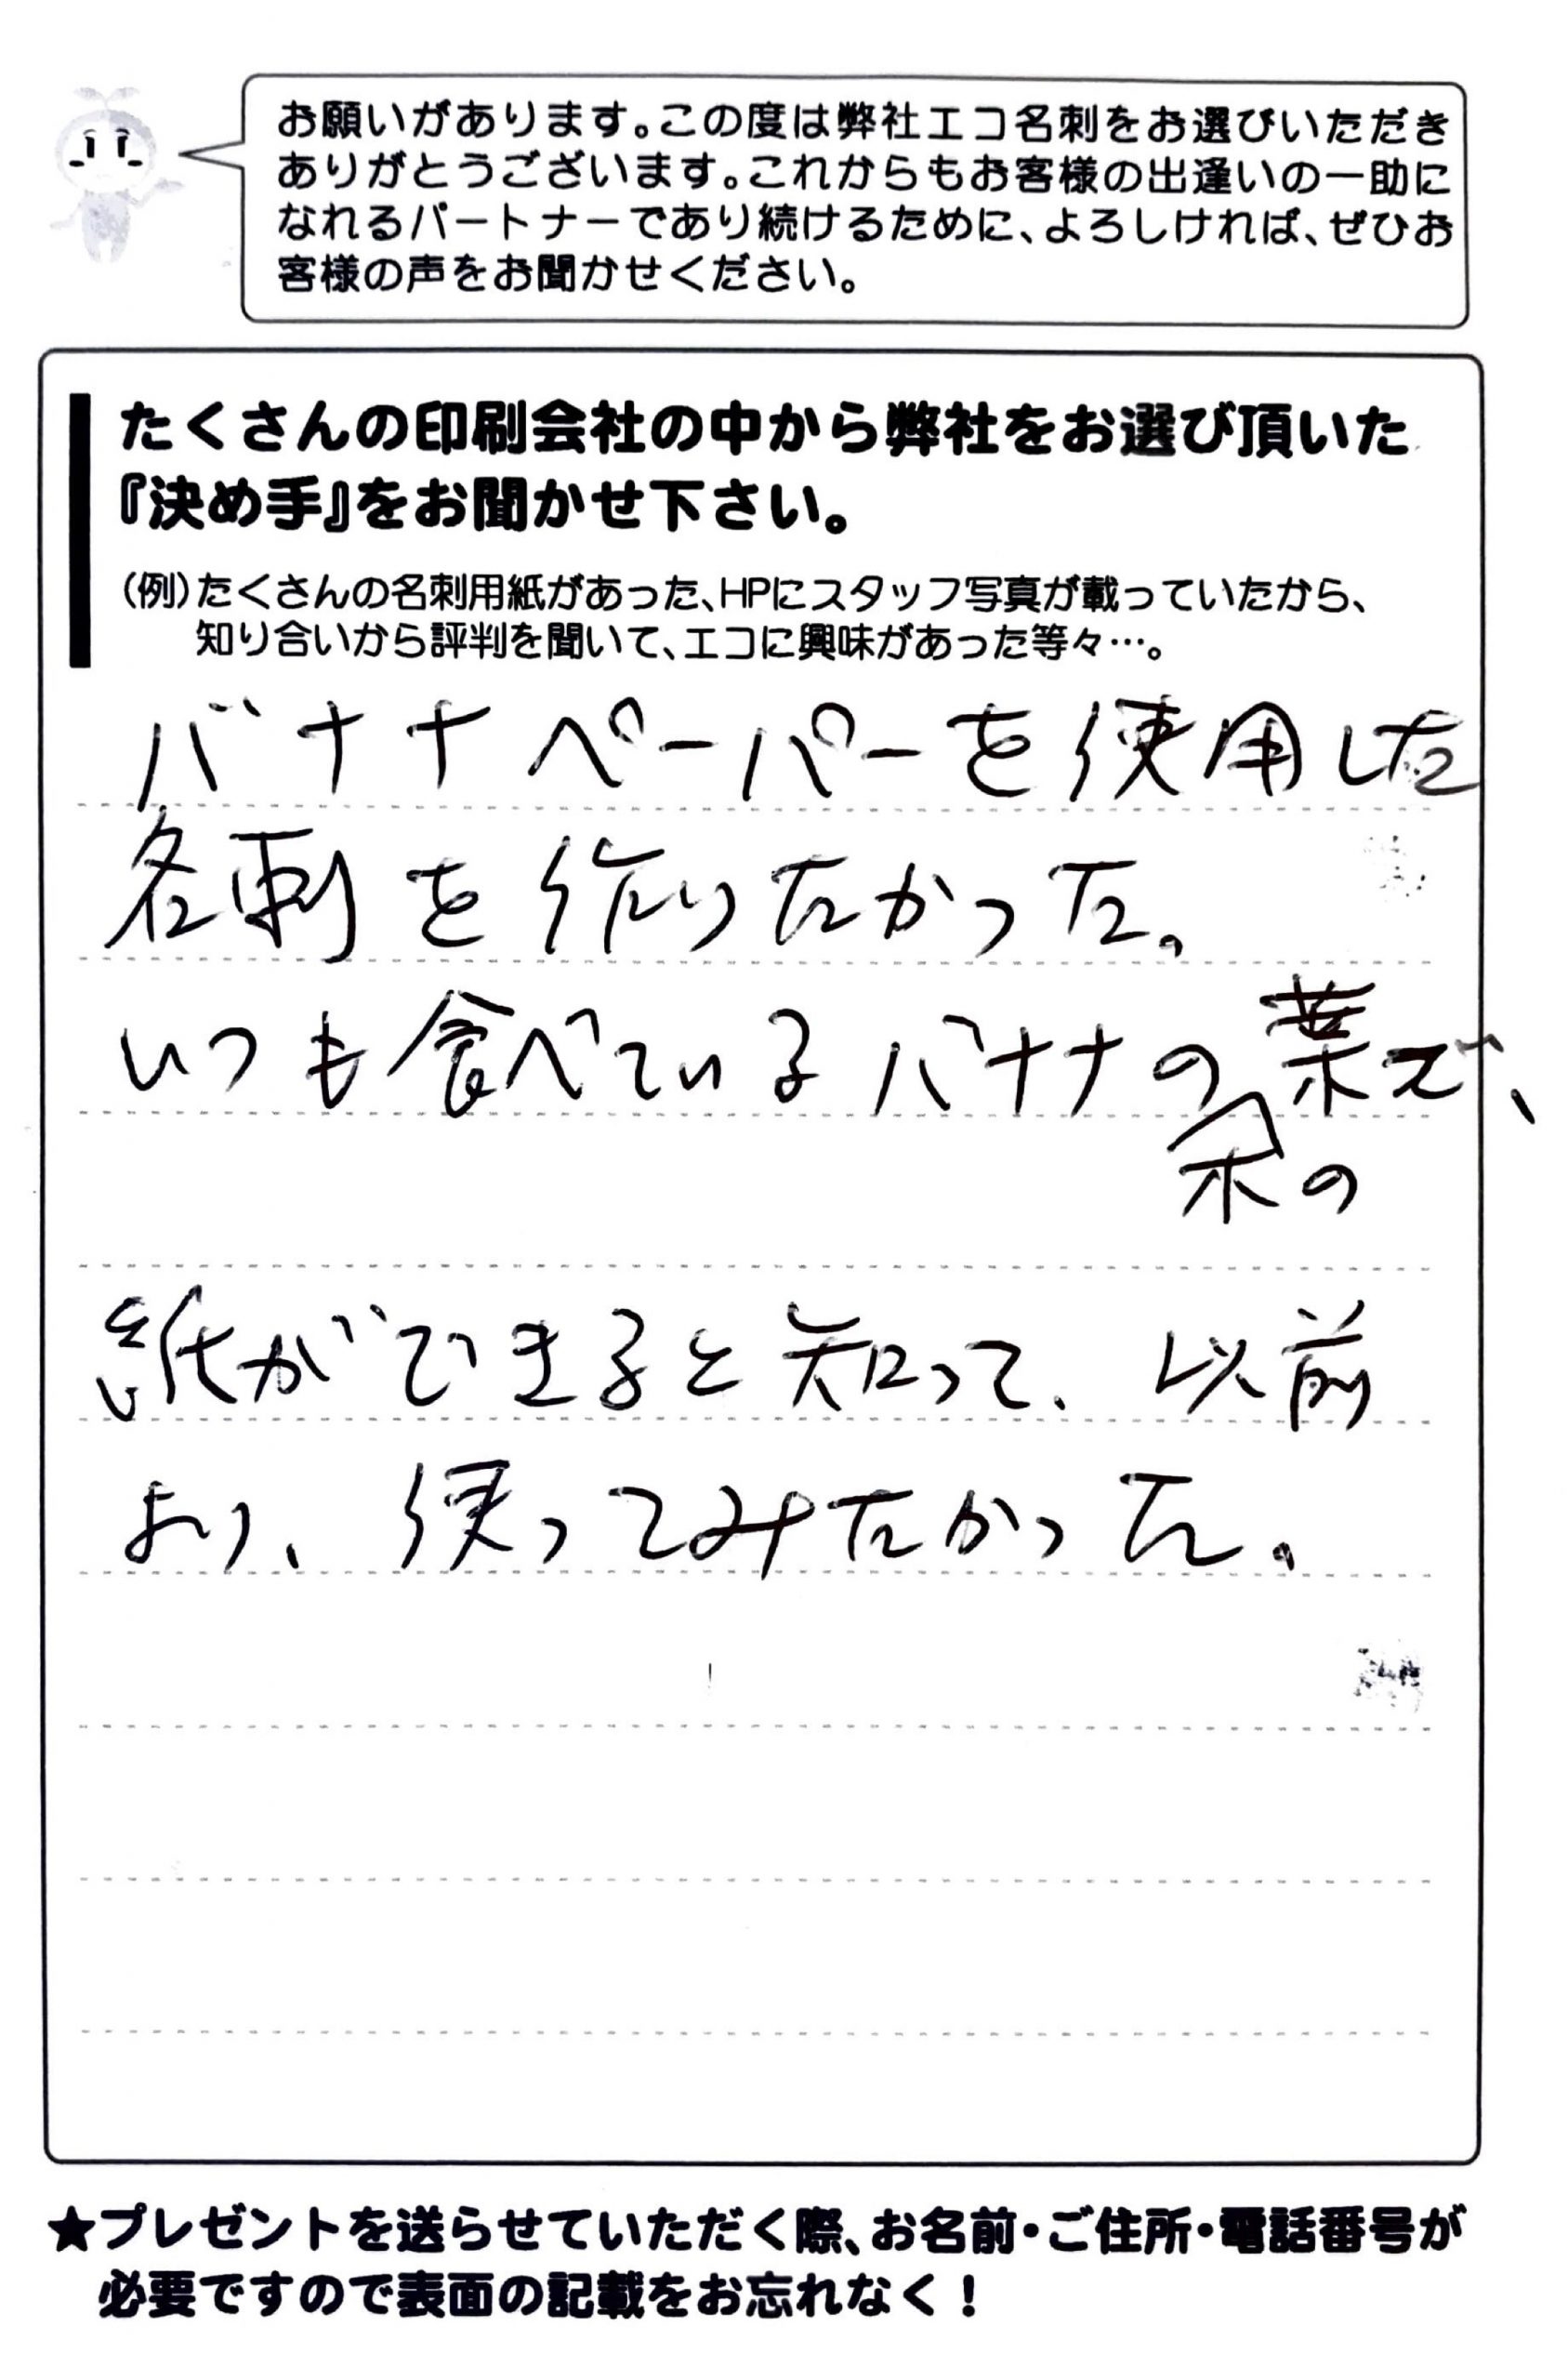 お願いがあります。この度は弊社エコ名刺をお選びいただき
ありがとうございます。これからもお客様の出逢いの一助に
なれるパートナーであり続けるために、よろしければ、ぜひお
客様の声をお聞かせください。
たくさんの印刷会社の中から弊社をお選び頂いた
『決め手』をお聞かせ下さい。
(例)たくさんの名刺用紙があった、HPにスタッフ写真が載っていたから、
知り合いから評判を聞いて、エコに興味があった等々…。
バナナペーパーを使用した
名刺を作りたかった。
いつも食べているバナナの葉で、
木の
紙ができると知って、以前
より、使ってみたかった。
★プレゼントを送らせていただく際、お名前・ご住所・電話番号が
必要ですので表面の記載をお忘れなく！